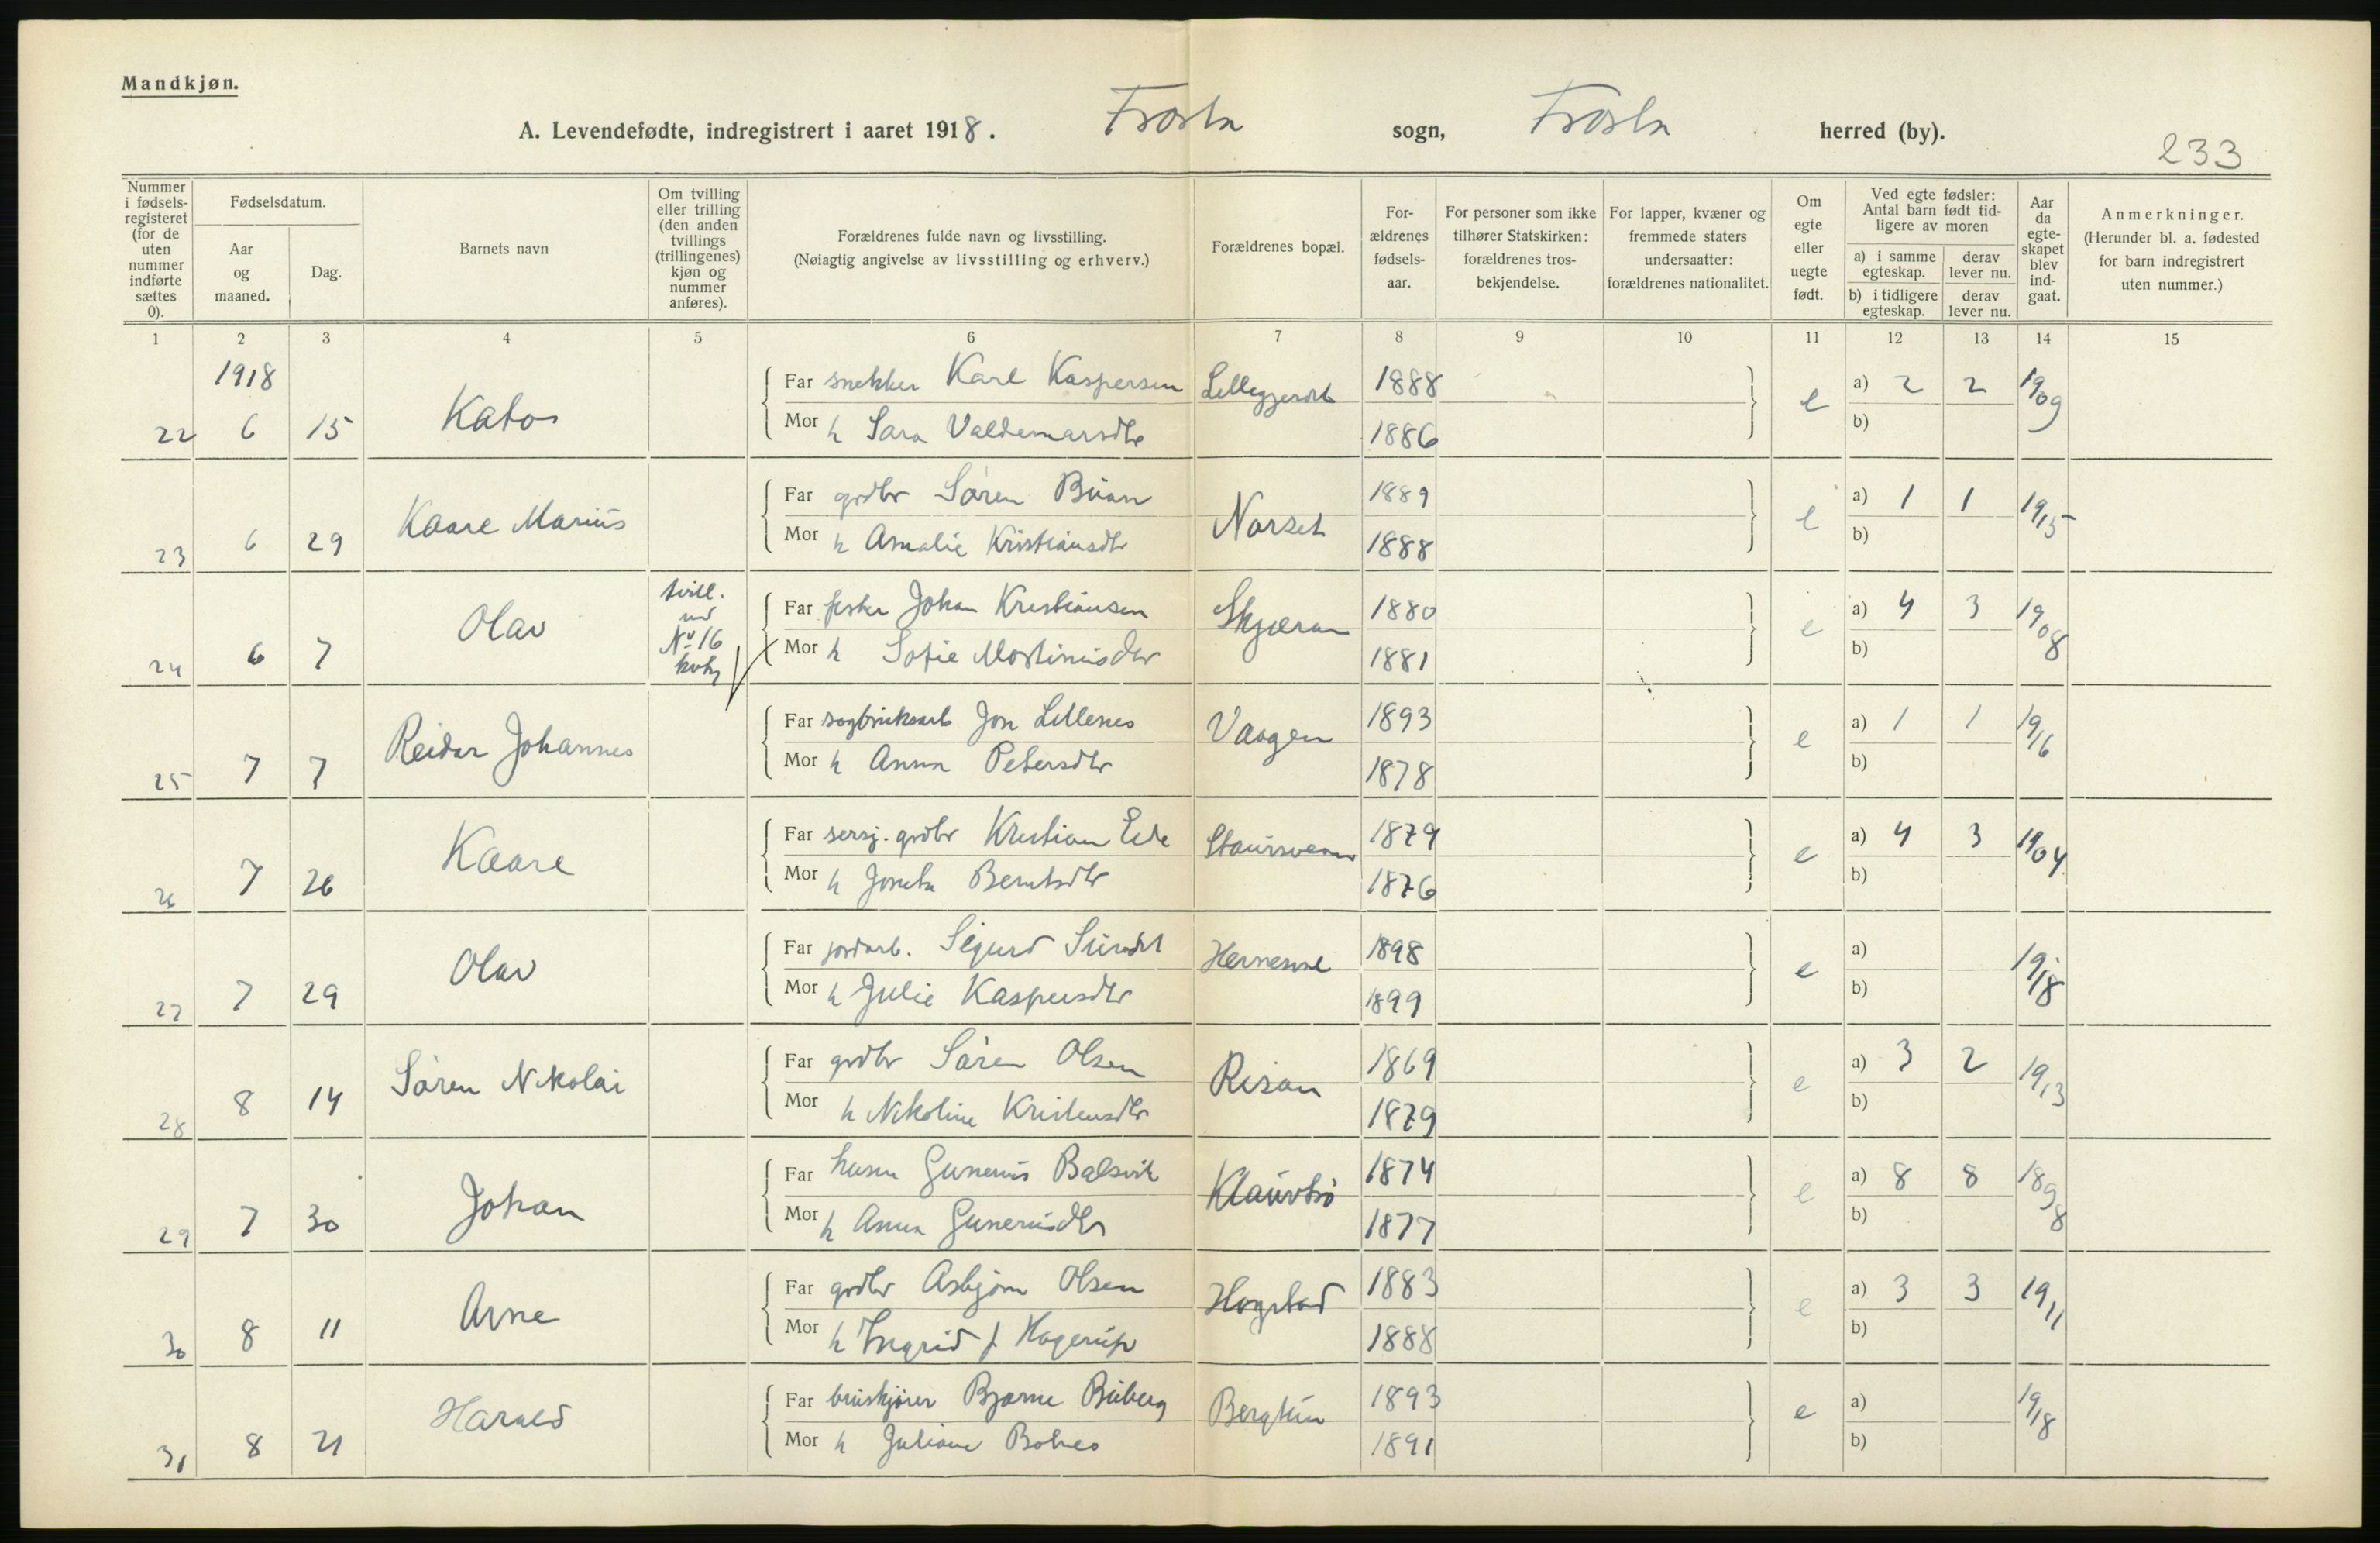 Mandkjøn.
A. Levendefødte, indregistrert i aaret 1918. Frosta sogn, Frosta herred (by).
233
Nummer i fødsels-registeret (for de uten nummer indførte sættes 0).
Fødselsdatum.
Aar og maaned.
Dag.
Barnets navn
Om tvilling eller trilling (den anden tvillings (trillingenes) kjøn og nummer anføres).
Forældrenes fulde navn og livsstilling.
(Nøiagtig angivelse av livsstilling og erhverv.)
Forældrenes bopæl.
For-ældrenes fødsels-aar.
For personer som ikke tilhører Statskirken: forældrenes tros-bekjendelse.
For lapper, kvæner og fremmede staters undersaatter: forældrenes nationalitet.
Om egte eller uegte født.
Ved egte fødsler: Antal barn født tid-ligere av moren
a) i samme egteskap.
derav lever nu.
b) i tidligere egteskap.
derav lever nu.
Aar da egte-skapet blev ind-gaat.
Anmerkninger.
(Herunder bl. a. fødested for barn indregistrert uten nummer.)
1 2 3 4 5 6 7 8 9 10 11 12 13 14 15
1918
22 6 15 Kato Far snekker Karl Kaspersen Lillegjerdet 1888 e a) 2 2 1909
Mor h Sara Valdemarsdtr 1886 b)
23 6 29 Kaare Marius Far grdbr Sören Buan Norset 1889 e a) 1 1 1915
Mor h Amalie Kristiansdtr 1888 b)
24 6 7 Olav tvill. med No 16 kvky Far fester Johan Kristiansen Skjæran 1880 e a) 4 3 1908
Mor h Sofie Mortinusdtr 1881 b)
25 7 7 Reidar Johannes Far sagbruksarb Jon Lillenes Vaagen 1893 e a) 1 1 1916
Mor h Anna Petersdtr 1878 b)
26 7 26 Kaare Far sersj. grdbr Kristian Eide 1879 e a) 4 3 1904
Mor h Berntsdtr 1876 b)
27 7 29 Olav Far jordarb. Sigurd 1898 e a) 1918
Mor h Julie Kaspersdtr 1899 b)
28 8 14 Sören Nikolai Far grdbr Sören Olsen Risan 1869 e a) 3 2 1913
Mor h Nikoline Kristensdtr 1879 b)
29 7 30 Johan Far husm Gunerius Balsvik 1874 e a) 8 8 1898
Mor h Anna Guneriusdtr 1877 b)
30 8 11 Arne Far grdbr Asbjörn Olsen Hogstad 1883 e a) 3 3 1911
Mor h Ingrid f Hagerup 1888 b)
31 8 21 Harald Far Bjarne Buberg Bergtun 1893 e a) 1918
Mor h Juliane 1891 b)